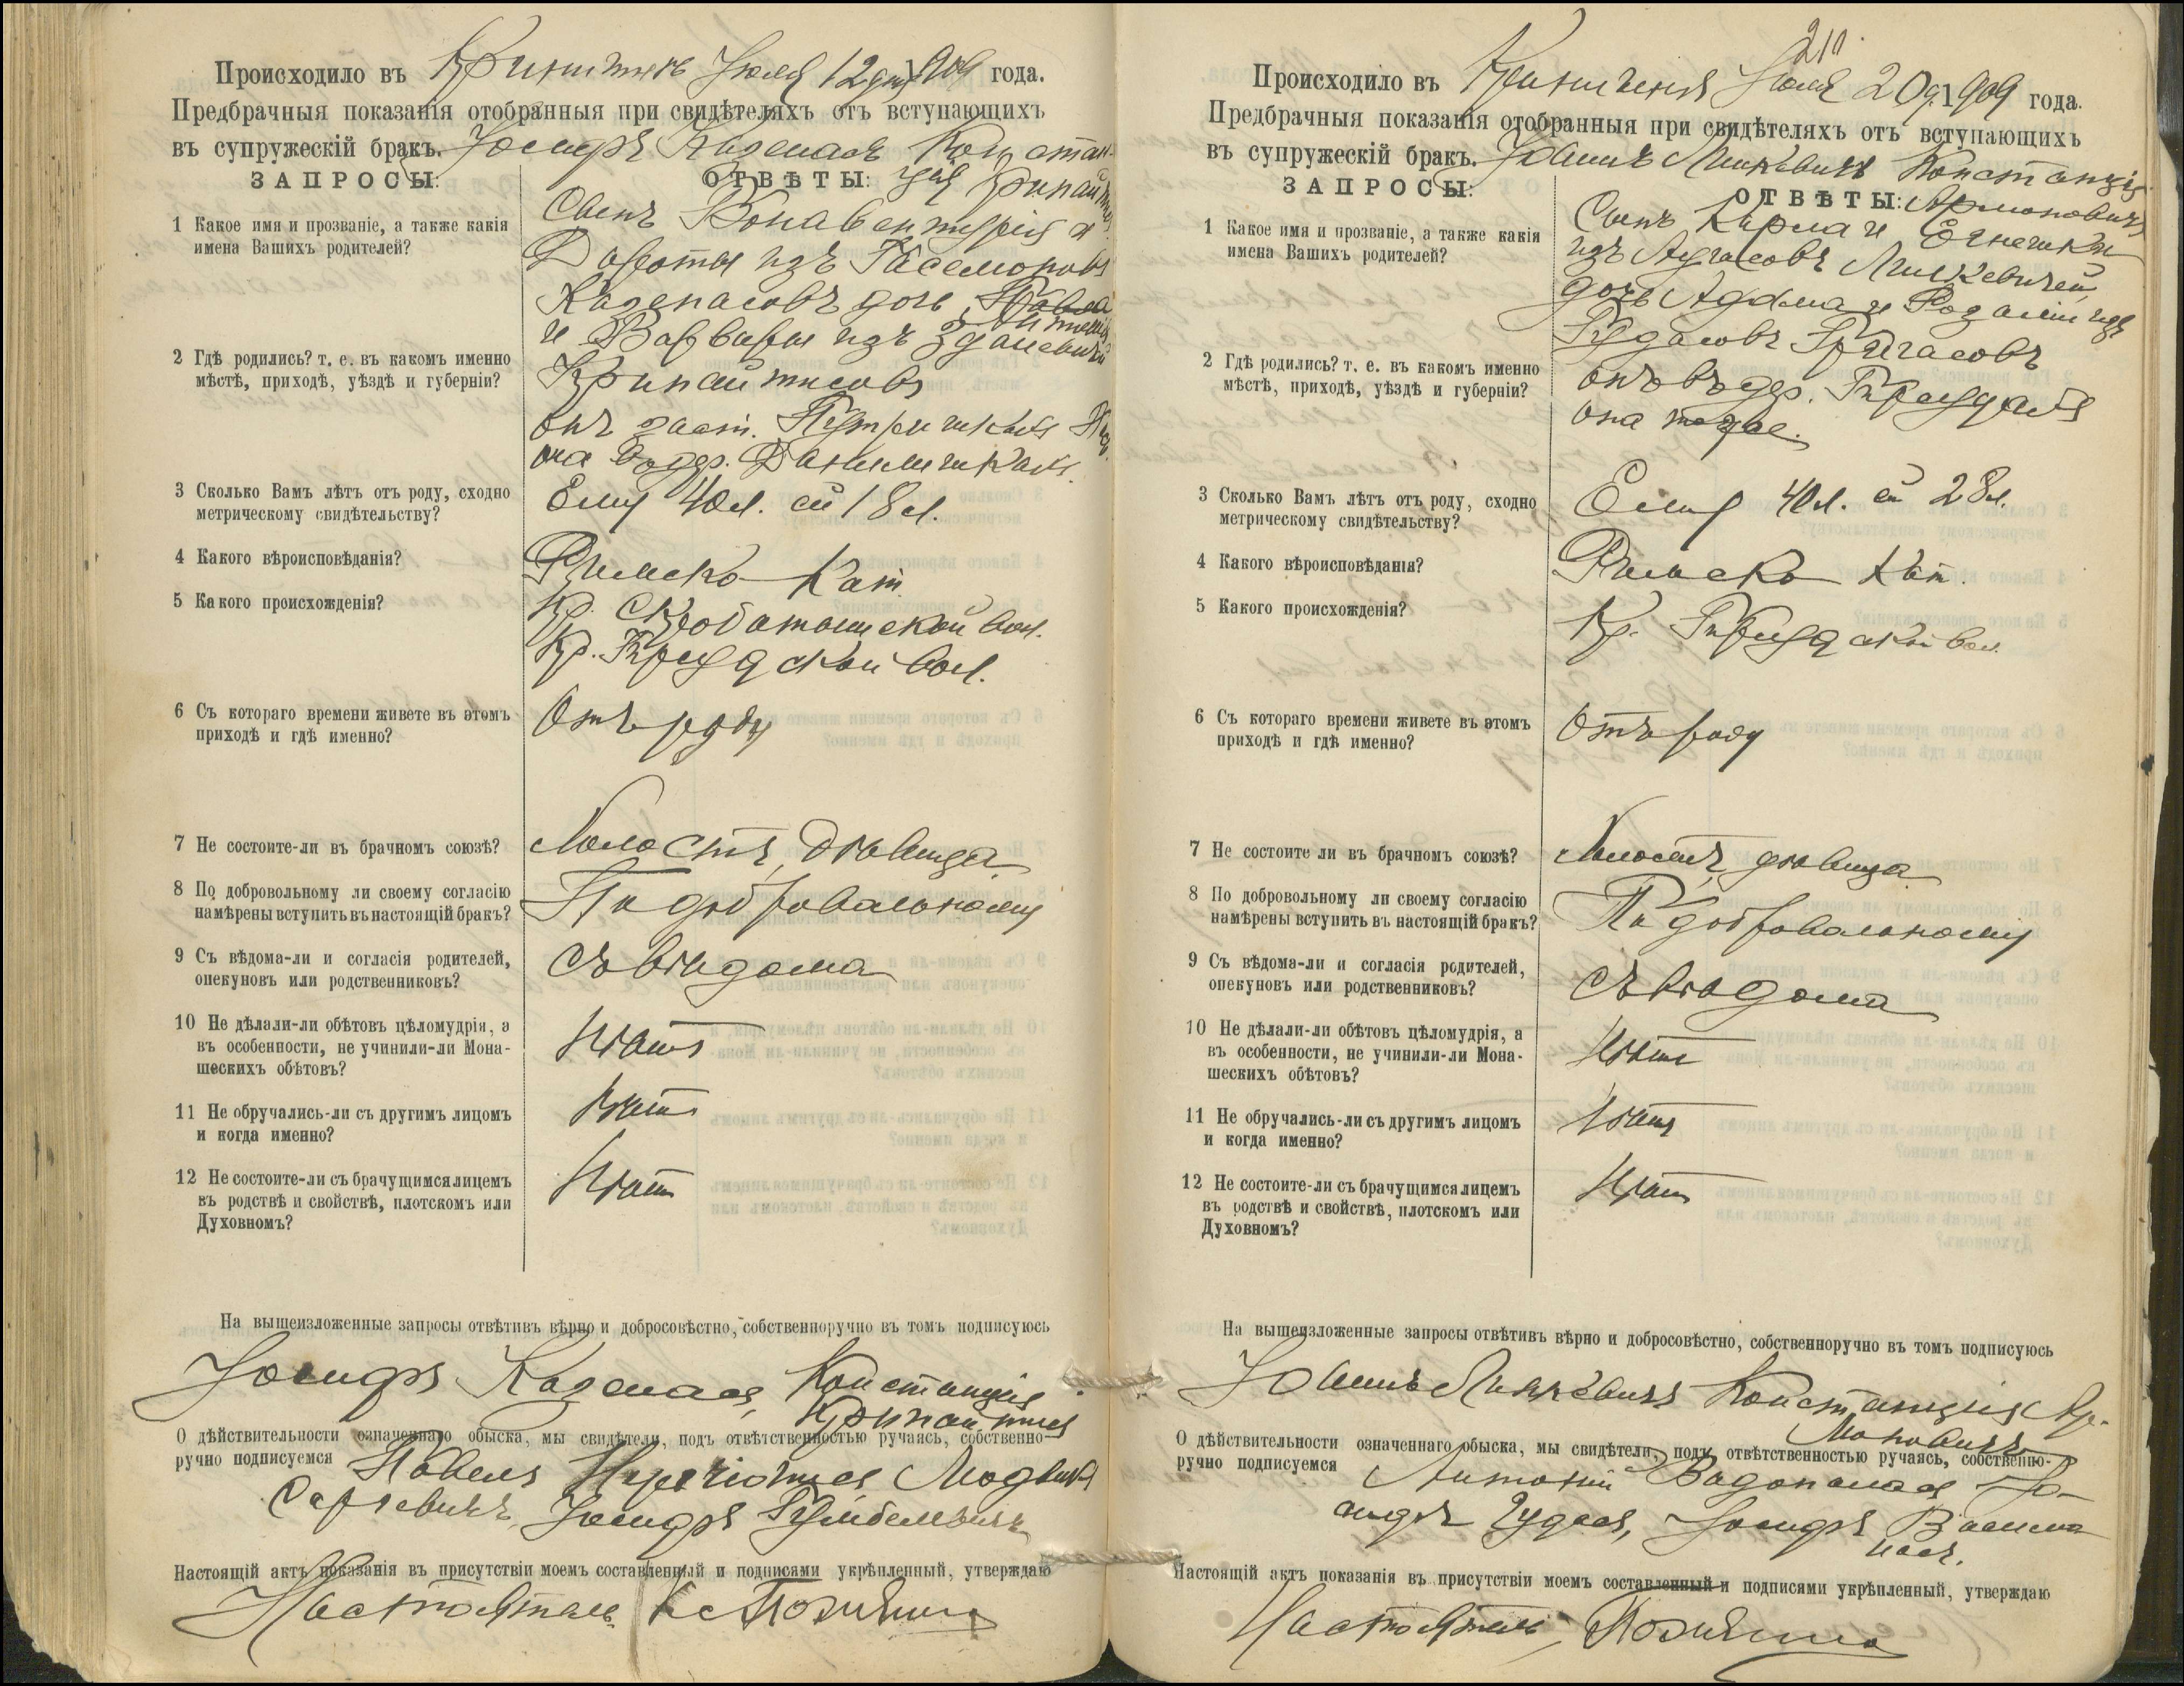 Происходило въ Іюля 12 дня 1909 года.
Предбрачныя показанія отобранныя при свидѣтеляхъ отъ вступающихъ
въ супружескій бракъ. Іосифъ Констан-
ЗАПРОСЫ: ОТВѢТЫ: ція
1 Какое имя и прозваніе, а также какія
имена Вашихъ родителей?
Сынъ Бонавентурія и
Дороты изъ
дочь
и Варвары изъ
2 Гдѣ родились? т. е. въ какомъ именно
мѣстѣ, приходѣ, уѣздѣ и губерніи?
онъ заст.
она въ дер.
3 Сколько Вамъ лѣтъ отъ роду, сходно
метрическому свидѣтельству?
Ему 40 л. ей 18 л.
4 Какого вѣроисповѣданія?
Римско-Кат.
5 Какого происхожденія?
Кр. Скробатышской вол.
Кр. вол.
6 Съ котораго времени живете въ этомъ
приходѣ и гдѣ именно?
Отъ роду
7 Не состоите-ли въ брачномъ союзѣ?
Холостъ, дѣвица
8 По добровольному ли своему согласію
намѣрены вступить въ настоящій бракъ?
По добровольному
9 Съ вѣдома-ли и согласія родителей,
опекуновъ или родственниковъ?
Съ вѣдома
10 Не дѣлали-ли обѣтовъ цѣломудрія, а
въ особенности, не учинили-ли Мона-
шескихъ обѣтовъ?
Нѣтъ
11 Не обручались-ли съ другимъ лицомъ
и когда именно?
Нѣтъ
12 Не состоите-ли съ брачущимся лицемъ
въ родствѣ и свойствѣ, плотскомъ или
Духовномъ?
Нѣтъ
На вышеизложенные запросы отвѣтивъ вѣрно и добросовѣстно, собственноручно въ томъ подписуюсь
Іосифъ Констанція
О дѣйствительности означеннаго обыска, мы свидѣтели, подъ отвѣтственностью ручаясь, собственно-
ручно подписуемся Павелъ
Іосифъ
Настоящій актъ показанія въ присутствіи моемъ составленный и подписями укрѣпленный, утверждаю
Настоятель
211
Происходило въ Іюля 20 д. 1909 года.
Предбрачныя показанія отобранныя при свидѣтеляхъ отъ вступающихъ
въ супружескій бракъ. Констанція
ЗАПРОСЫ: ОТВѢТЫ:
1 Какое имя и прозваніе, а также какія
имена Вашихъ родителей?
Сынъ Карла и
изъ
дочь Адама и Розаліи изъ
2 Гдѣ родились? т. е. въ какомъ именно
мѣстѣ, приходѣ, уѣздѣ и губерніи?
онъ въ дер.
она тоже.
3 Сколько Вамъ лѣтъ отъ роду, сходно
метрическому свидѣтельству?
Ему 40 л. ей 28 л.
4 Какого вѣроисповѣданія?
Римско Кат.
5 Какого происхожденія?
Кр. вол.
6 Съ котораго времени живете въ этомъ
приходѣ и гдѣ именно?
Отъ роду
7 Не состоите ли въ брачномъ союзѣ?
Холостъ, дѣвица
8 По добровольному ли своему согласію
намѣрены вступить въ настоящій бракъ?
По добровольному
9 Съ вѣдома-ли и согласія родителей,
опекуновъ или родственниковъ?
Съ вѣдома
10 Не дѣлали-ли обѣтовъ цѣломудрія, а
въ особенности, не учинили-ли Мона-
шескихъ обѣтовъ?
Нѣтъ
11 Не обручались-ли съ другимъ лицомъ
и когда именно?
Нѣтъ
12 Не состоите-ли съ брачущимся лицемъ
въ родствѣ и свойствѣ, плотскомъ или
Духовномъ?
Нѣтъ
На вышеизложенные запросы отвѣтивъ вѣрно и добросовѣстно, собственноручно въ томъ подписуюсь
Констанція
О дѣйствительности означеннаго обыска, мы свидѣтели, подъ отвѣтственностью ручаясь, собственно-
ручно подписуемся Антоній Іо-
сифъ Іосифъ
Настоящій актъ показанія въ присутствіи моемъ составленный и подписями укрѣпленный, утверждаю
Настоятель